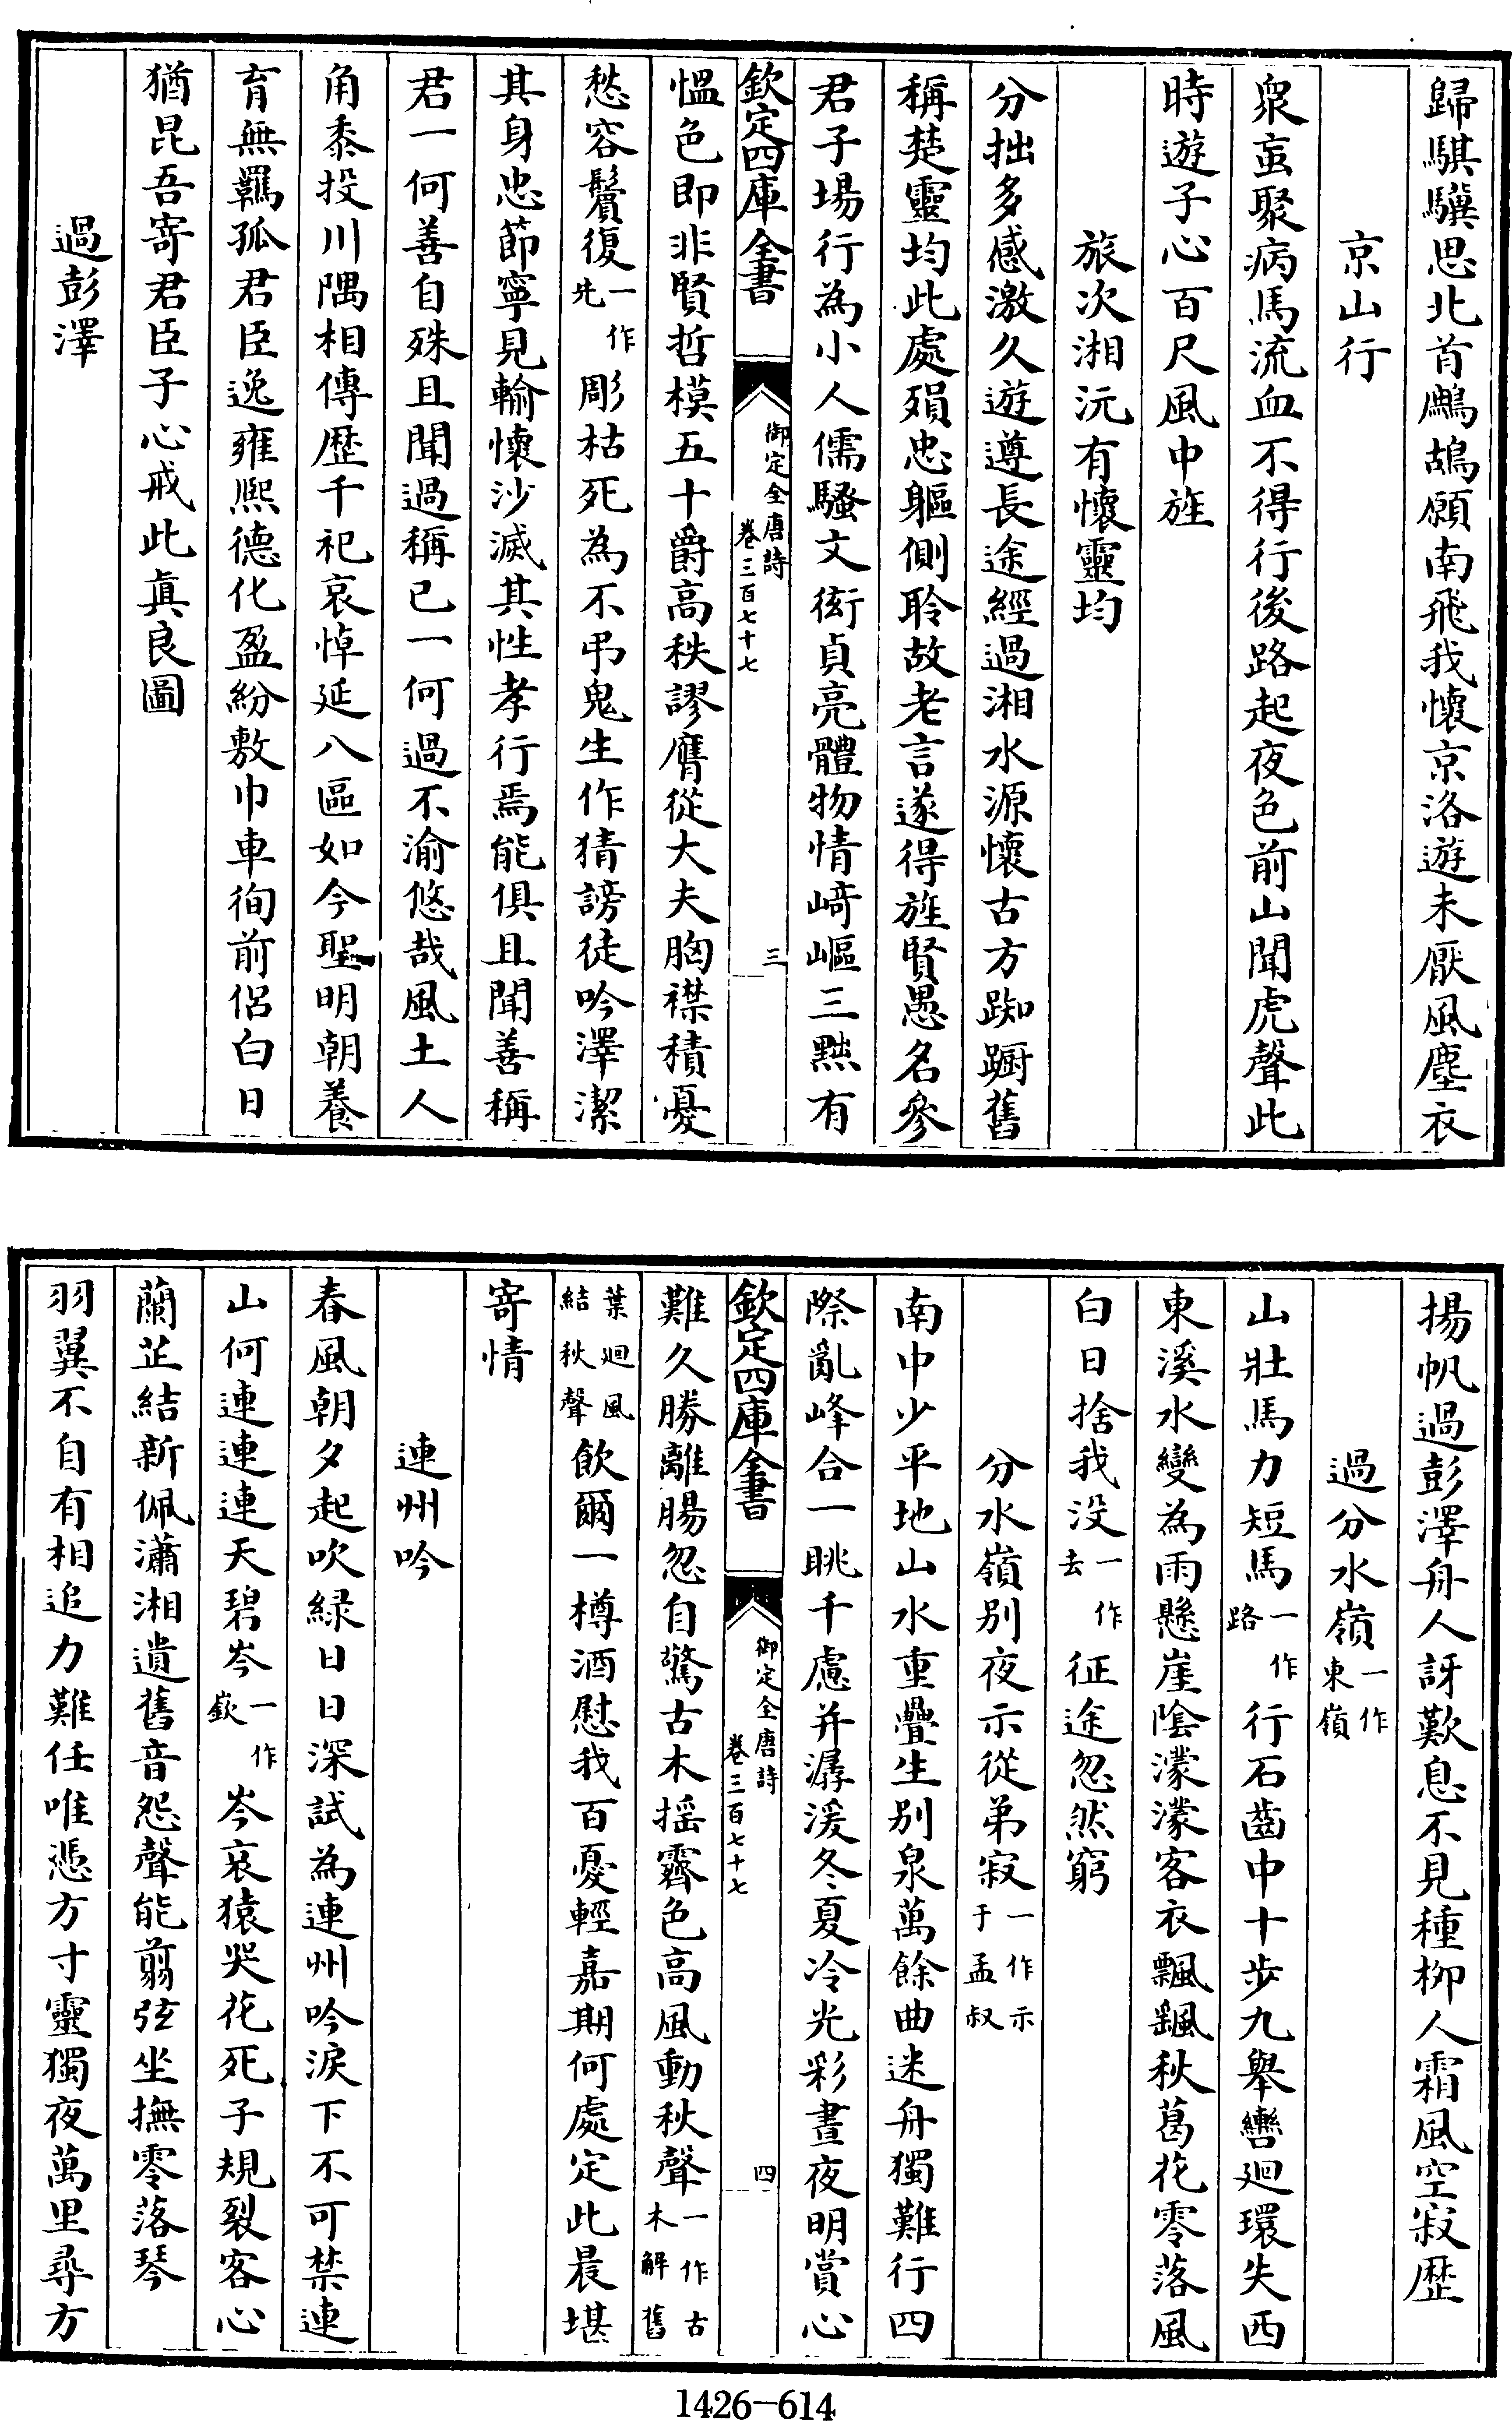 歸騏驥思北首鷓鴣願南飛我懷京洛遊未厭風塵衣
京山行
衆䖟聚病馬流血不得行後路起夜色前山聞虎聲此
時遊子心百尺風中旌
旅次湘沅有懷靈均
分拙多感激久遊遵長途經過湘水源懷古方踟蹰舊
稱楚靈均此處殞忠軀側聆故老言遂得旌賢愚名參
君子場行為小人儒騷文衒貞亮體物情崎嶇三黜有
欽定四庫全書
御定全唐詩
卷三百七十七
三
愠色即非賢哲模五十爵高秩謬膺從大夫胸襟積憂
愁容鬢復一作先彫枯死為不弔鬼生作猜謗徒吟澤潔
其身忠節寧見輸懷沙滅其性孝行焉能俱且聞善稱
君一何善自殊且聞過稱已一何過不渝悠哉風土人
角黍投川隅相傳歴千祀哀悼延八區如今聖明朝養
育無羈孤君臣逸雍熙德化盈紛敷巾車徇前侶白日
猶昆吾寄君臣子心戒此真良圖
過彭澤
揚帆過彭澤舟人訝歎息不見種柳人霜風空寂歴
過分水嶺一作東嶺
山壯馬力短馬一作路行石齒中十步九舉轡迴環失西
東溪水變為雨懸崖陰濛濛客衣飄颻秋葛花零落風
白日捨我没一作去征途忽然窮
分水嶺别夜示從弟寂一作示于孟叔
南中少平地山水重疊生别泉萬餘曲迷舟獨難行四
際亂峰合一眺千慮并潺湲冬夏冷光彩晝夜明賞心
欽定四庫全書
御定全唐詩
卷三百七十七
四
難久勝離腸忽自驚古木摇霽色高風動秋聲一作古木解舊
葉廻風結秋聲飲爾一樽酒慰我百憂輕嘉期何處定此晨堪
寄情
連州吟
春風朝夕起吹緑日日深試為連州吟淚下不可禁連
山何連連連天碧岑一作嶔岑哀猿哭花死子規裂客心
蘭芷結新佩瀟湘遺舊音怨聲能翦弦坐撫零落琴
羽翼不自有相追力難任唯憑方寸靈獨夜萬里尋方
1426-614